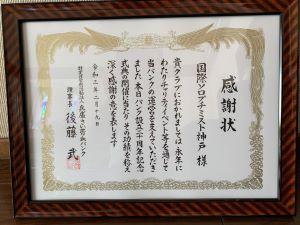 感謝状
国際ソロプチミスト神戸 様
貴クラブにおかれましては永年に
わたりチャリティイベント等を通じて
当バンクの運営を支えていただき
ました 本日バンク設立二十周年記念
式典の開催に当たり その功績を称え
深く感謝の意を表します
令和三年二月十九年
理事長 後藤 武